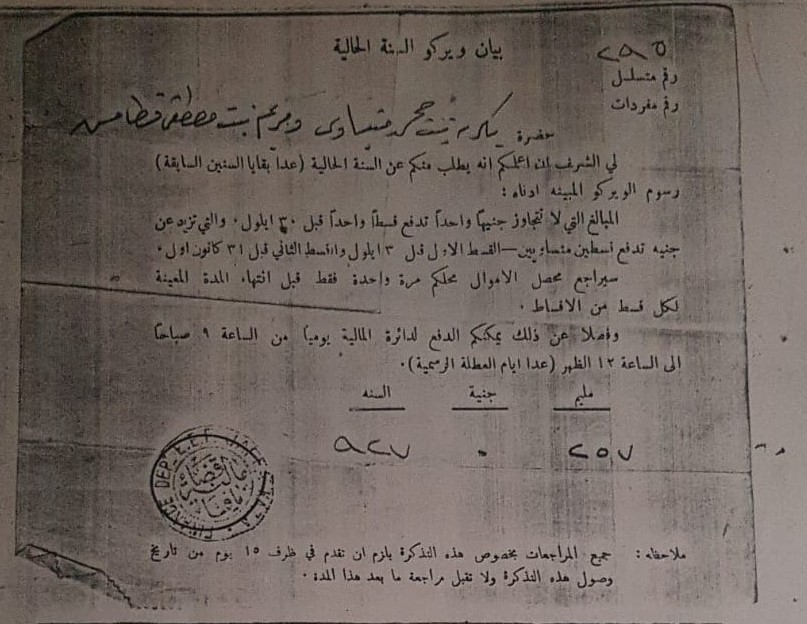 بيان ويركو السنة الحالية
٢٨٥
رقم متسلسل
رقم مفردات
حضرة ومريم بنت مصطفى
لي الشرف ان اعلمكم انه يطلب منكم عن السنة الحالية (عدا بقايا السنين السابقة)
رسوم الويركو المبينه ادناه :
المبالغ التي لا تتجاوز جنيهاً واحداً تدفع قسطاً واحداً قبل ٣٠ ايلول . والتي تزيد عن
جنيه تدفع قسطين متساويين — القسط الاول قبل ٣٠ ايلول والقسط الثاني قبل ٣١ كانون اول .
سيراجع محصل الاموال محلكم مرة واحدة فقط قبل انتهاء المدة المعينة
لكل قسط من الاقساط .
وفضلا عن ذلك يمكنكم الدفع لدائرة المالية يومياً من الساعة ٩ صباحاً
الى الساعة ١٢ الظهر (عدا ايام العطلة الرسمية) .
مليم جنية السنه
٢٥٧ ٠ ٩٢٧
مالية قضاء يافا
ملاحظه : جميع المراجعات بخصوص هذه التذكرة يلزم ان تقدم في ظرف ١٥ يوم من تاريخ
وصول هذه التذكرة ولا تقبل مراجعة ما بعد هذا المدة .